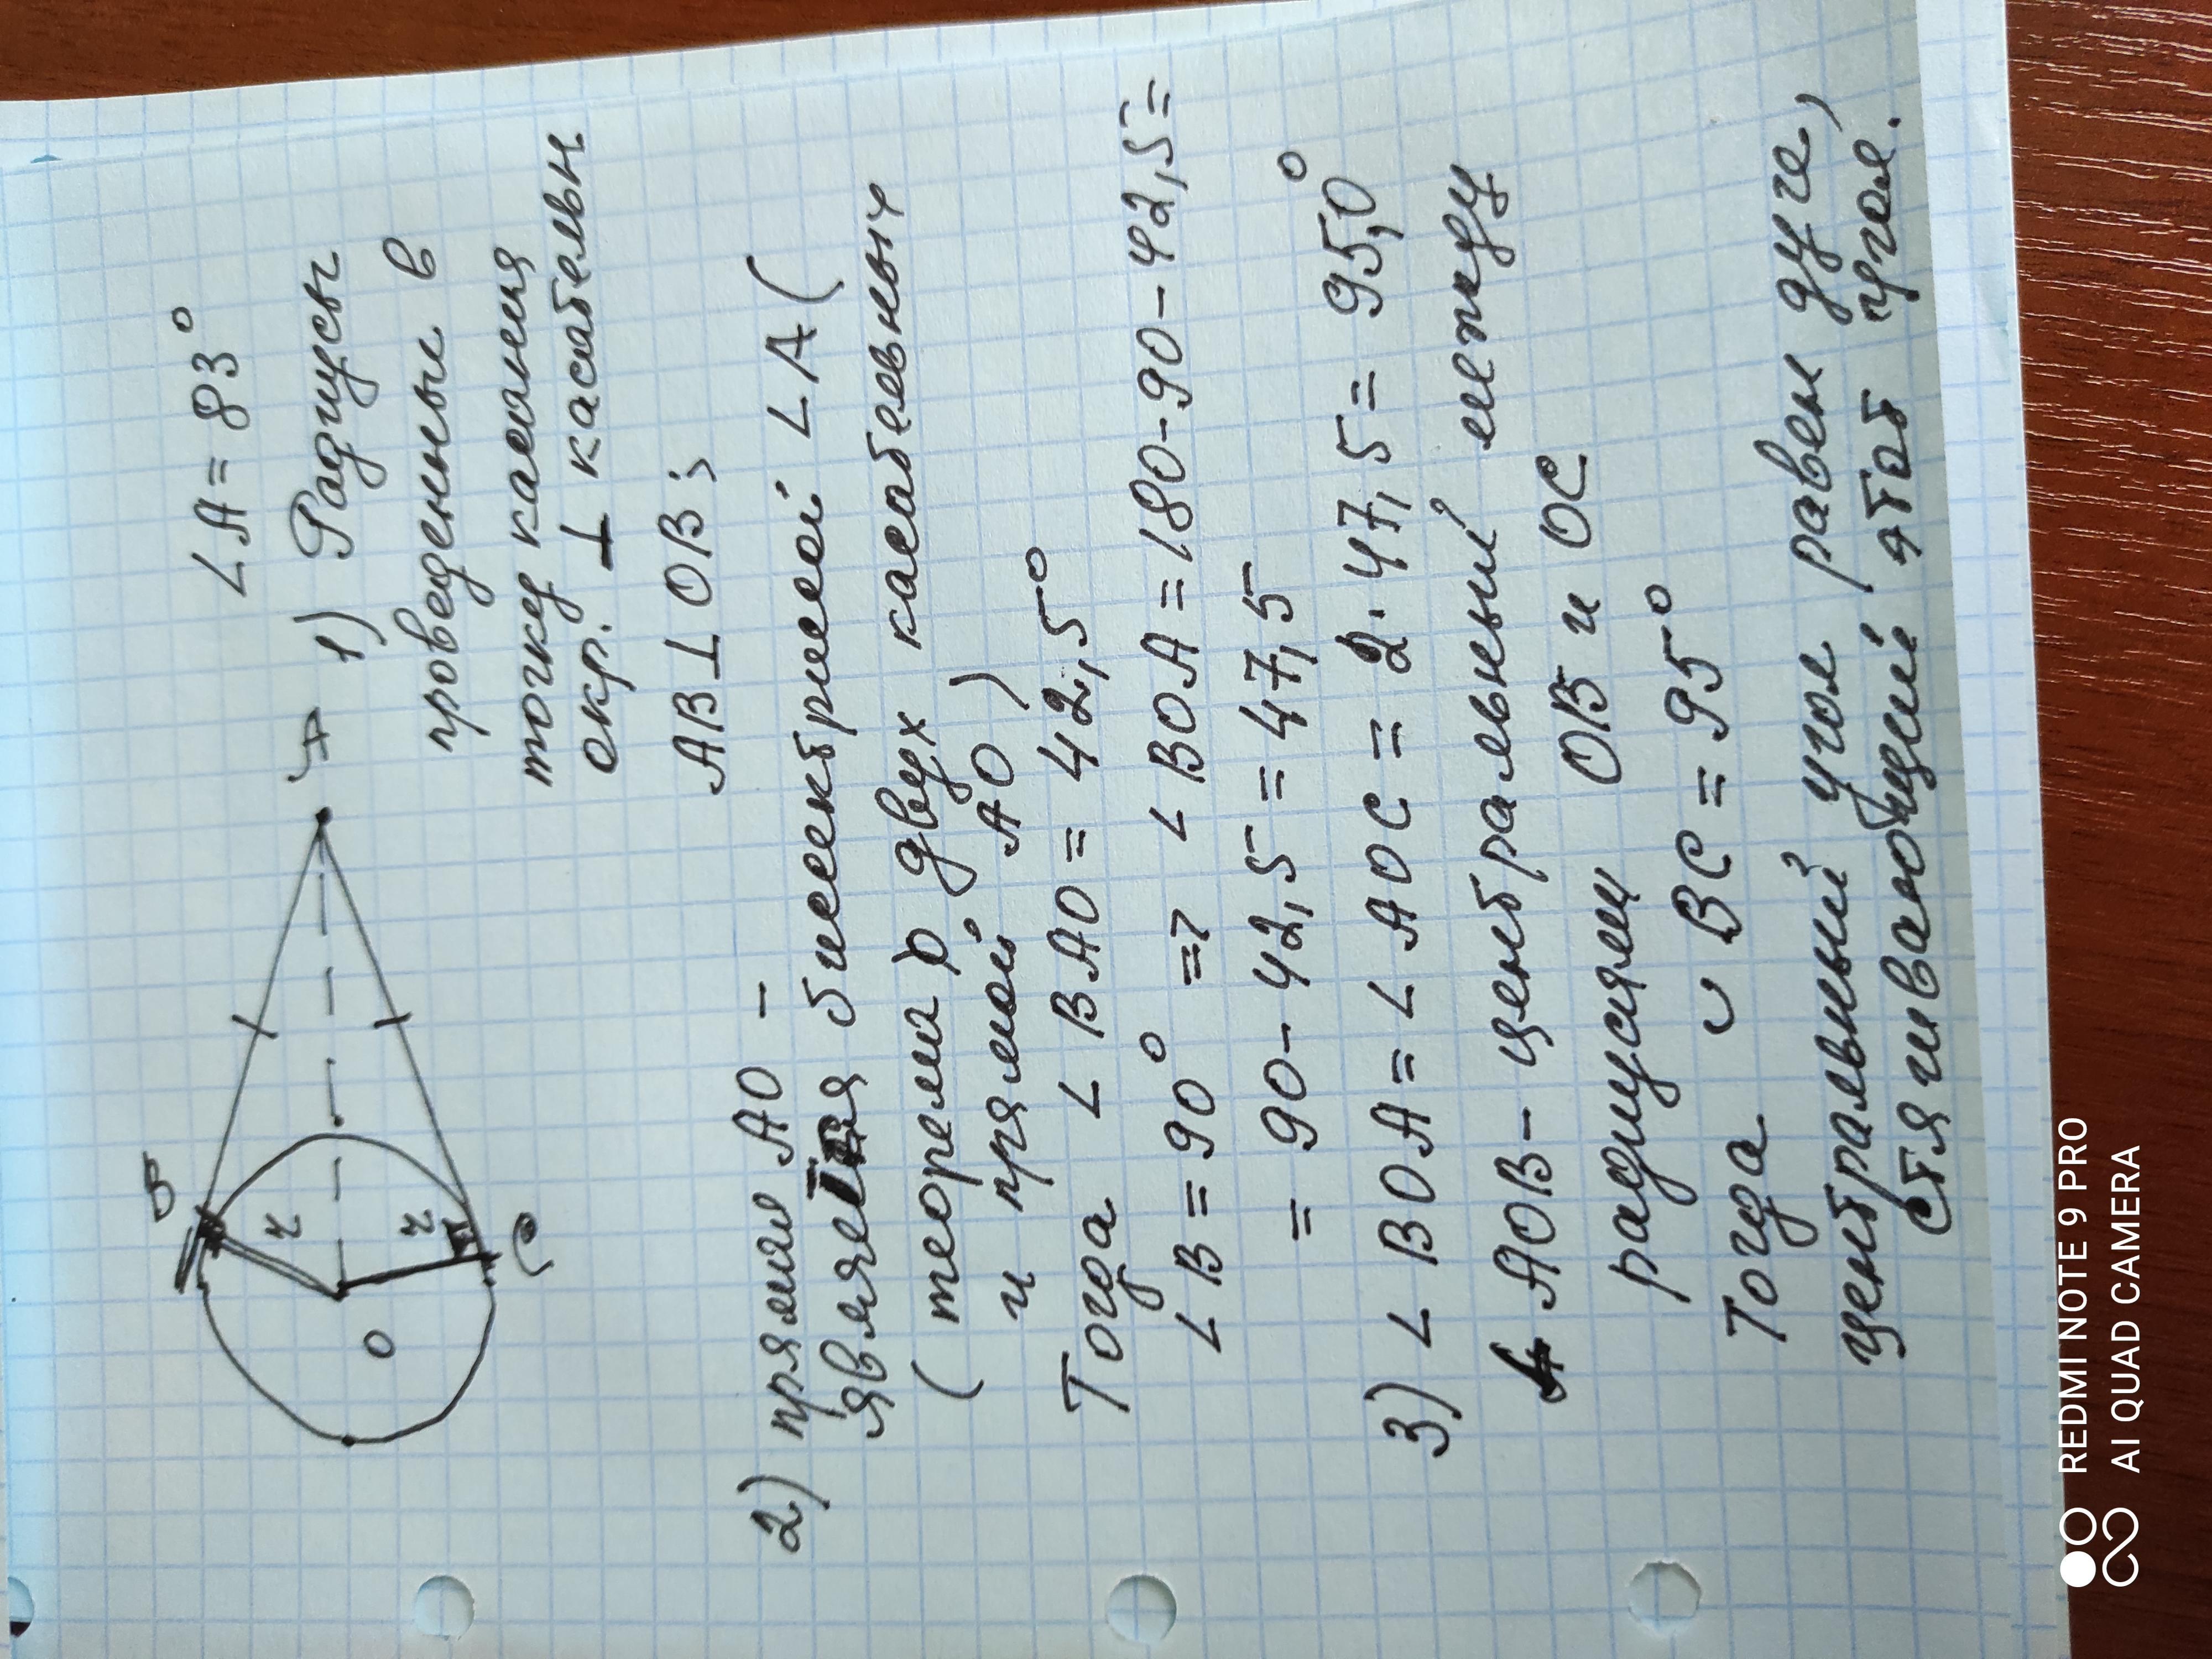 ∠A = 83°
В
А
r
r
О
С
1) Радиусы
проведенные в
точку касания
окр. ⊥ касательн
AB ⊥ OB;
2) прямая AO –
является биссектрисой ∠A (
( теорема о двух касательных
и прямой AO )
Тогда ∠BAO = 42,5°
∠B = 90° => ∠BOA = 180-90-42,5=
= 90-42,5 = 47,5
3) ∠BOA = ∠AOC = 2·47,5 = 95,0°
AOB – центральный между
радиусями OB и OC
Тогда ◡ BC = 95°
центральный угол равен дуге,
стягивающий этот угол.
REDMI NOTE 9 PRO
AI QUAD CAMERA